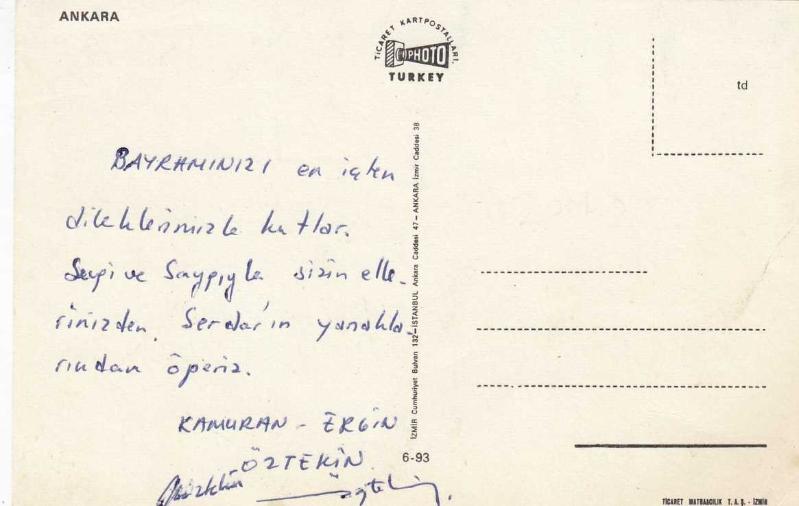 ANKARA
TİCARET KARTPOSTALLARI
PHOTO
TURKEY
td
BAYRAMINIZI en içten
dileklerimizle kutlar.
Sevgi ve Saygıyla sizin elle-
rinizden. Serdar'ın yanakla-
rından öperiz.
KAMURAN - ERGİN
ÖZTEKİN
İZMİR Cumhuriyet Bulvarı 132-İSTANBUL Ankara Caddesi 47-ANKARA İzmir Caddesi 38
6-93
TİCARET MATBAACILIK T. A. Ş. - İZMİR